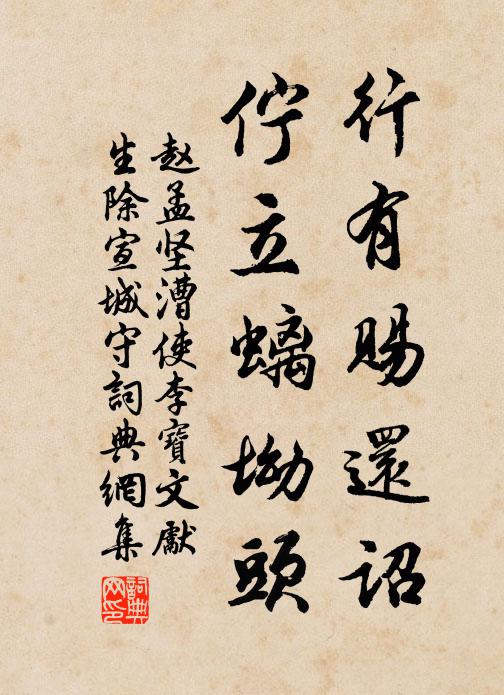 行有賜還詔
佇立螭坳頭
赵孟坚漕使李寶文獻
生除宣城守詞典網集
詞典
网印